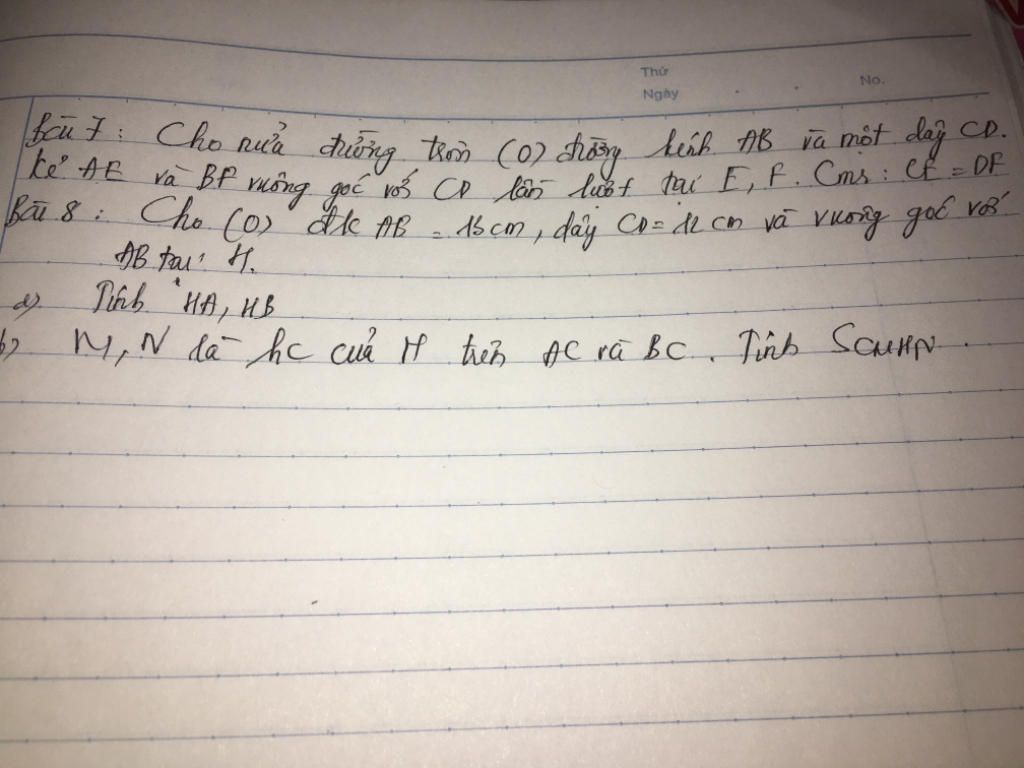 Thứ
Ngày
No.
Bài 7: Cho nửa đường tròn (O) đường kính AB và một dây CD.
Kẻ AE và BF vuông góc với CD lần lượt tại E, F. Cmr: CE = DF
Bài 8: Cho (O) đk AB = 13 cm, dây CD = 12 cm và vuông góc với
AB tại H.
a) Tính HA, HB
b) M, N là hc của H trên AC và BC. Tính SCMHN.